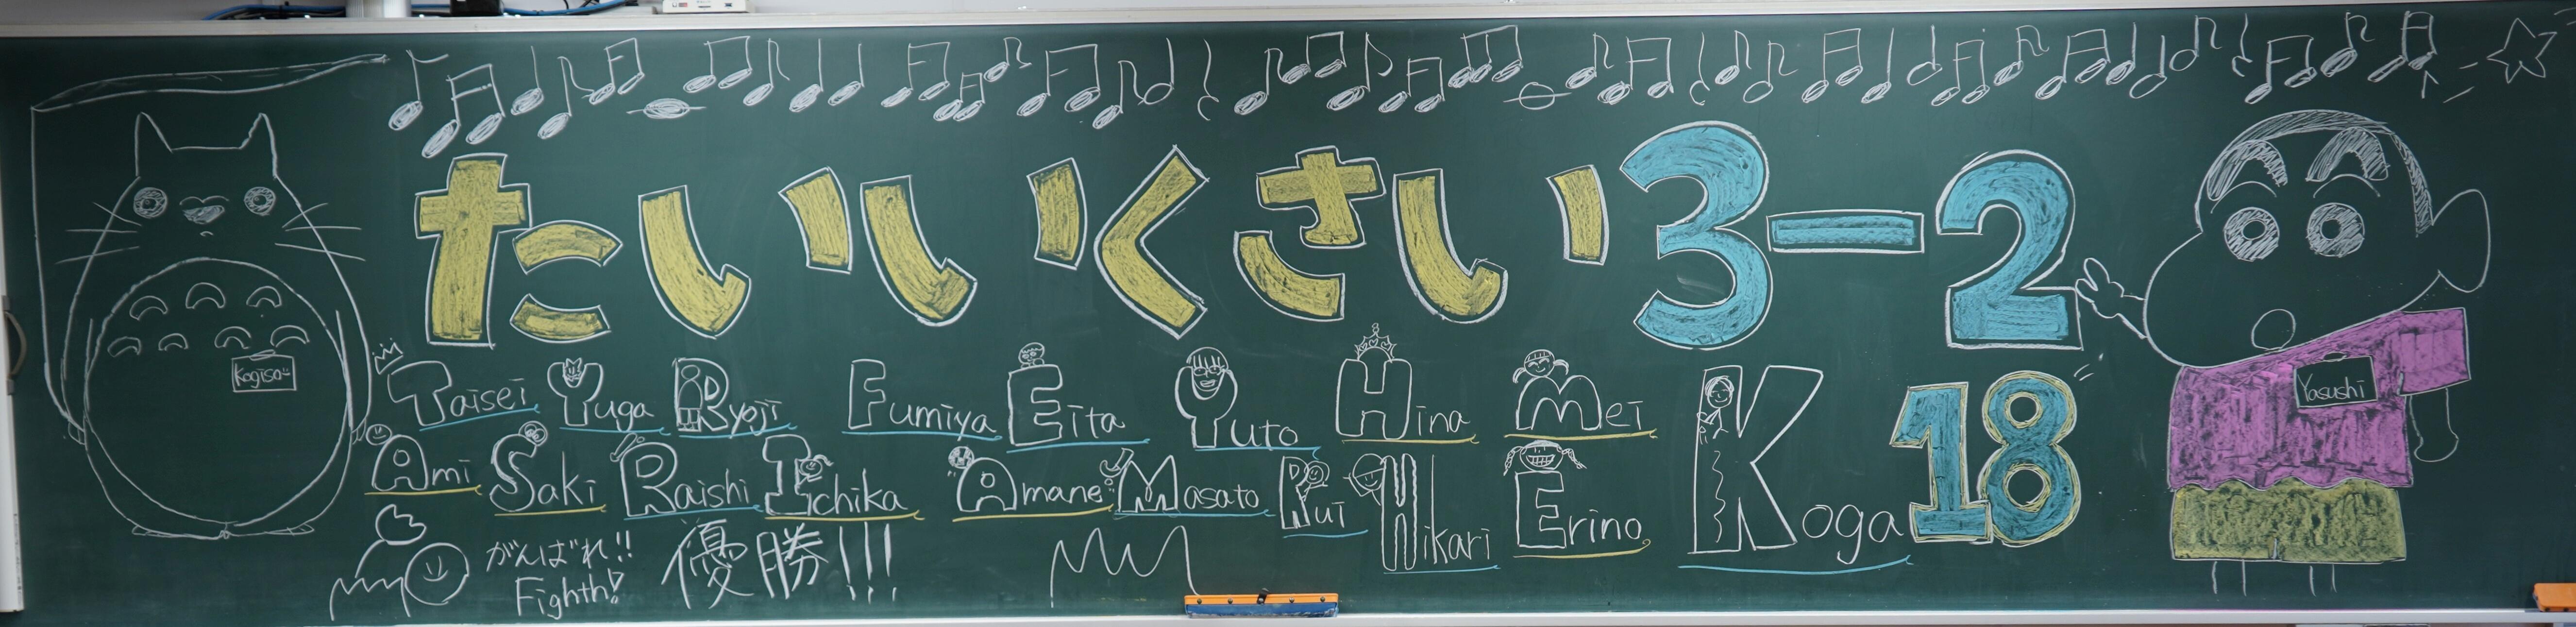 たいいくさい 3-2
Kogiso
Yasushi
Taisei Yuga Ryoji Fumiya Eita Yuto Hina Mei
Ami Saki Raishi Ichika Amane Masato Rui Hikari Erino Koga 18
がんばれ!! 優勝!!!
Fighth!